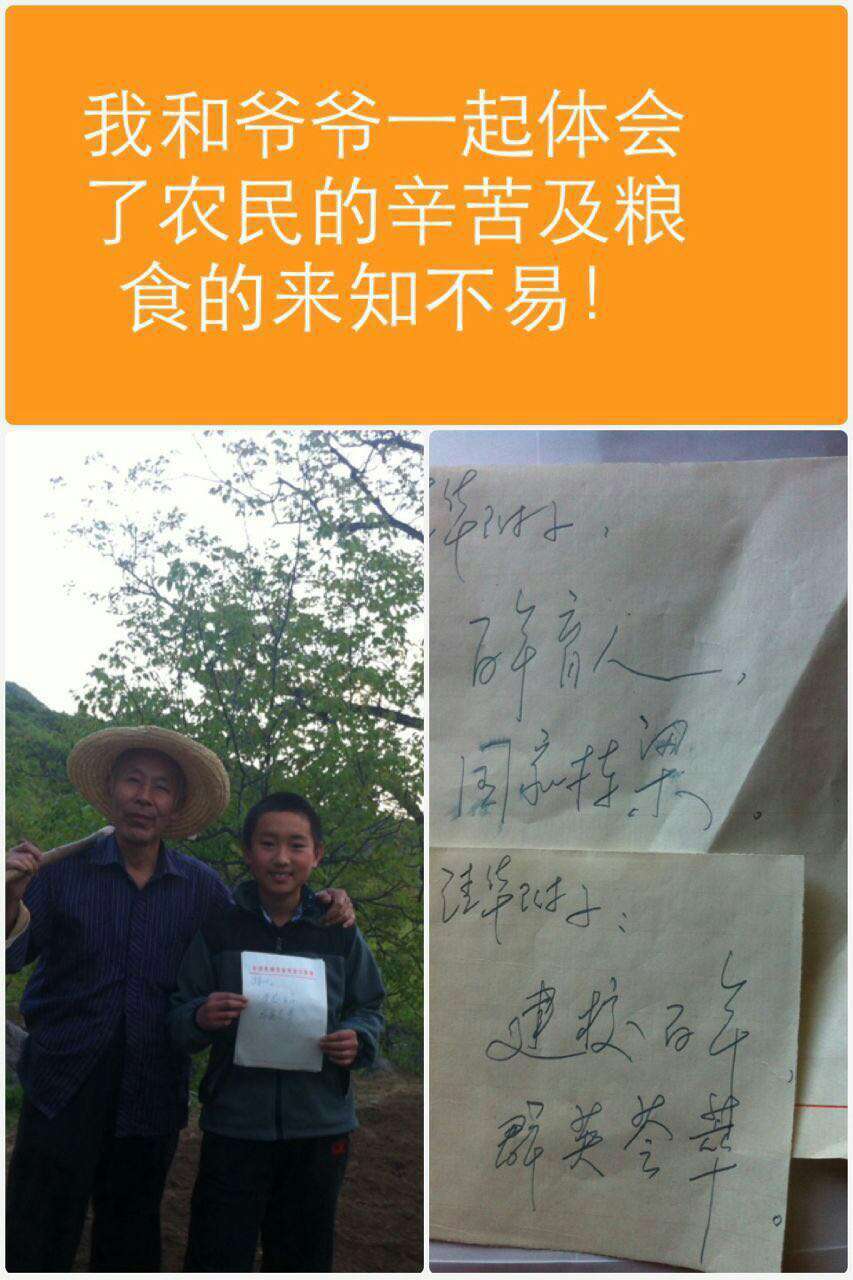 我和爷爷一起体会
了农民的辛苦及粮
食的来知不易！
华附小，
百年育人，
国家栋梁。
清华附小：
建校百年，
群英荟萃。